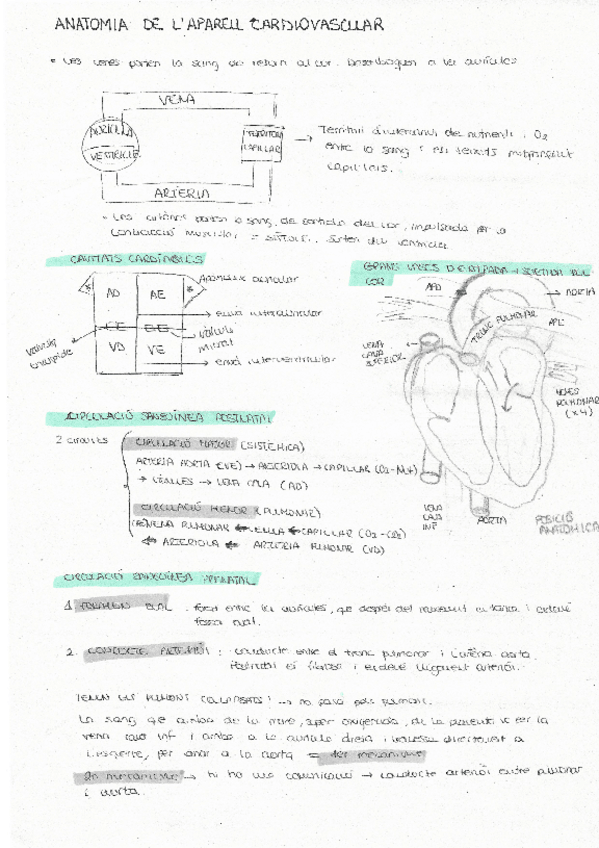 ANATOMIA DE L'APARELL CARDIOVASCULAR
• Les venes porten la sang de retorn al cor. Desemboquen a les aurícules
VENA
AURÍCULA
VENTRICLE
TERRITORI
CAPILAR
ARTERIA
→ Territori d'intercanvi de nutrients i O2
entre la sang i els teixits mitjançant
capil·lars.
• Les artèries porten la sang de sortida del cor, impulsada per la
contracció muscular = sístole. Surten del ventricle
CAVITATS CARDÍAQUES
AD AE
VD VE
Apèndix auricular
envà interauricular
vàlvula
mitral
envà interventricular
vàlvula
tricúspide
GRANS VASOS D'ARRIBADA I SORTIDA DEL
COR
APD
AORTA
TRONC PULMONAR
APE
VENA
CAVA
SUPERIOR
VENES
PULMONARS
(x4)
VENA
CAVA
INF
AORTA
POSICIÓ
ANATÒMICA
CIRCULACIÓ SANGUÍNEA POSTNATAL
2 circuits
CIRCULACIÓ MAJOR (SISTÈMICA)
ARTERIA AORTA (VE) → ARTERIOLA → CAPILLAR (O2-Nut)
→ VÈNULES → VENA CAVA (AD)
CIRCULACIÓ MENOR (PULMONAR)
VENA PULMONAR ← VÈNULA ← CAPILLAR (O2-CO2)
← ARTERIOLA ← ARTERIA PULMONAR (VD)
CIRCULACIÓ SANGUÍNEA PRENATAL
1. FORAMEN OVAL. forat entre les aurícules, que després del naixement es tanca i esdevé
fossa oval.
2. CONDUCTE ARTERIÓS: conducte entre el tronc pulmonar i l'artèria aorta.
Postnatal es fibrosa i esdevé lligament arteriós.
TENEN ELS PULMONS COL·LAPSATS! → no passa pels pulmons.
La sang que arriba de la mare, super oxigenada, de la placenta ve per la
vena cava inf i arriba a la aurícula dreta i travessa directament a
l'esquerre, per anar a la aorta = 1er mecanisme
2n mecanisme → hi ha una comunicació → conducte arteriós entre pulmonar
i aorta.